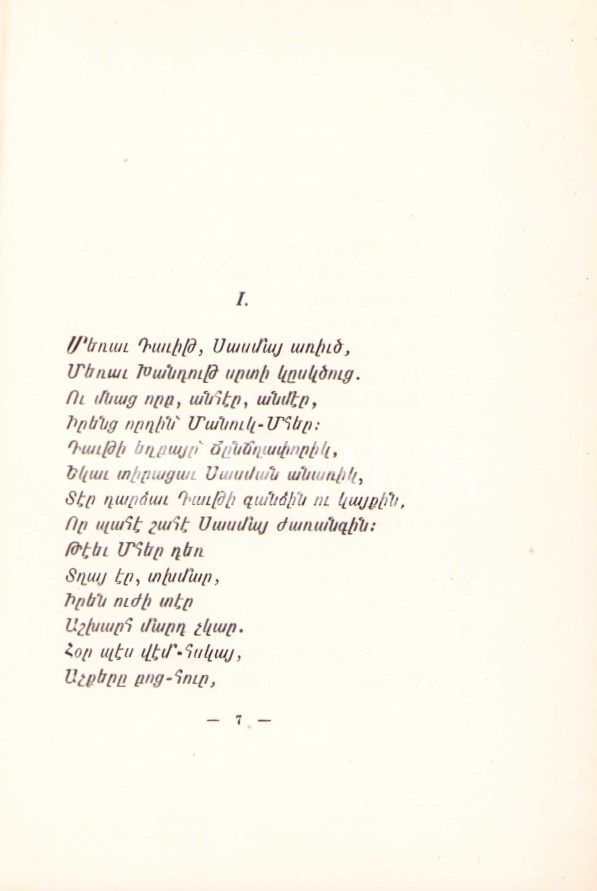 I.
Մեռաւ Դաւիթ, Սասմայ առիւծ,
Մեռաւ Խանդութ սրտի կըսկծուց.
Ու մնաց որբ, անհէր, անմէր,
Իրենց որդին՝ Մանուկ-Մհեր։
Դաւթի եղբայր՝ Ճընճղափորիկ,
Եկաւ տիրացաւ Սասման անառիկ,
Տէր դարձաւ Դաւթի գանձին ու կայքին,
Որ պահէ շահէ Սասմայ ժառանգին։
Թէեւ Մհեր դեռ
Տղայ էր, տխմար,
Իրեն ուժի տէր
Աշխարհ մարդ չկար.
Հօր պէս վէմ-հսկայ,
Աչքերը բոց-հուր,
— 7 —